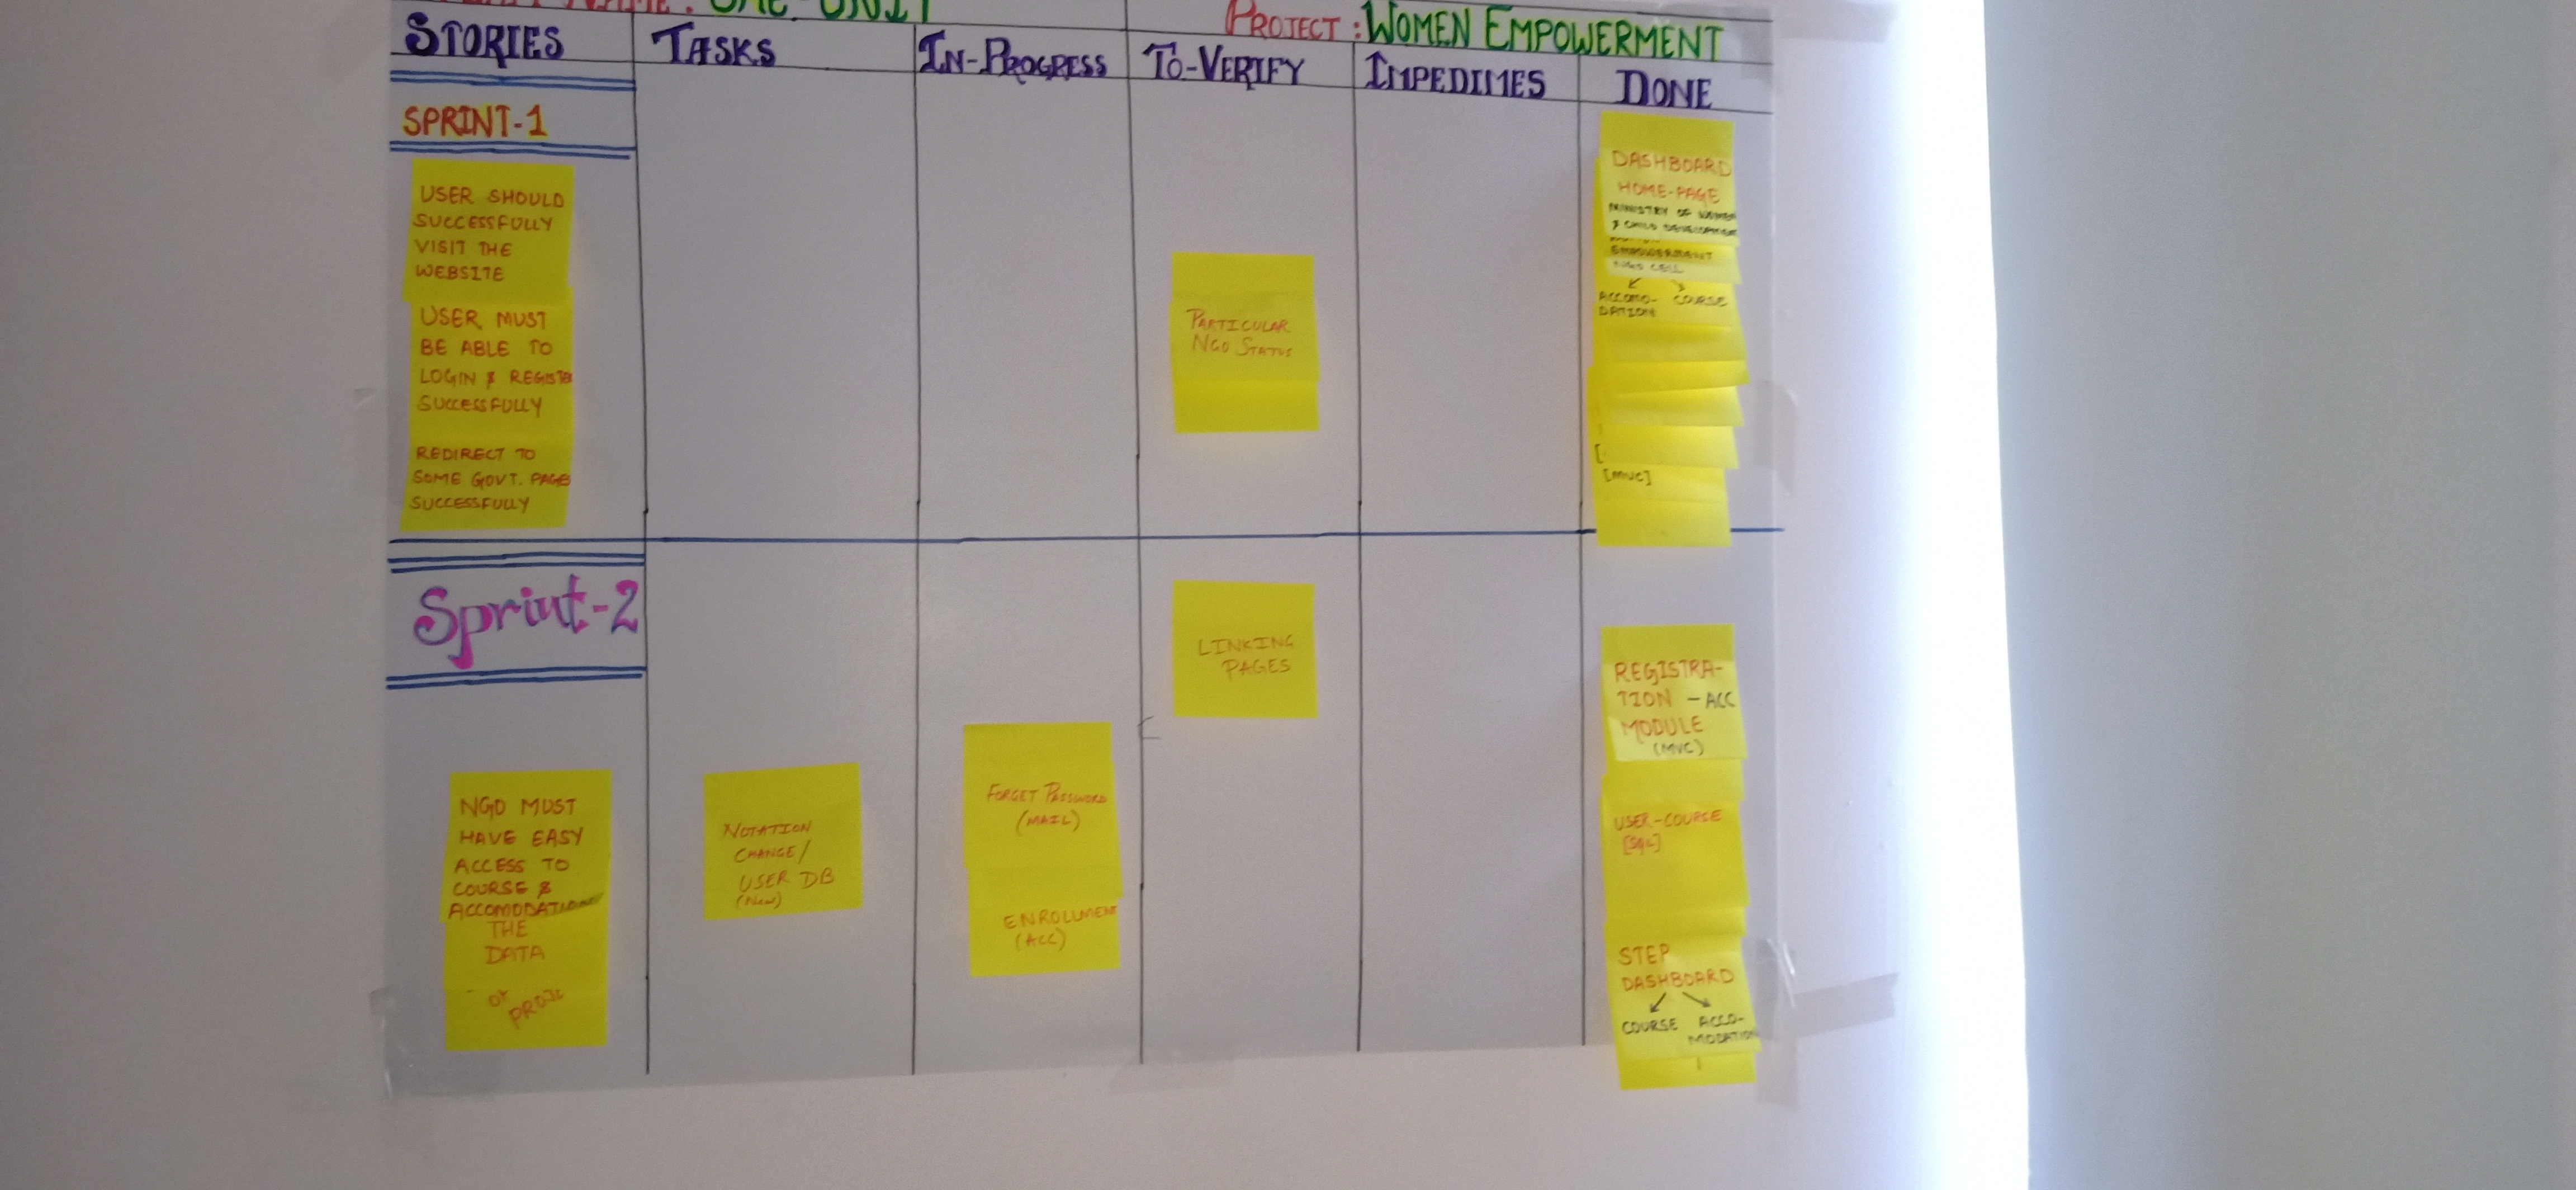 PROJECT : WOMEN EMPOWERMENT
STORIES
TASKS
IN-PROGRESS
TO-VERIFY
IMPEDIMES
DONE
SPRINT-1
USER SHOULD
SUCCESSFULLY
VISIT THE
WEBSITE
USER MUST
BE ABLE TO
LOGIN & REGISTER
SUCCESSFULLY
REDIRECT TO
SOME GOVT. PAGES
SUCCESSFULLY
PARTICULAR
NGO STATUS
DASHBOARD
HOME-PAGE
MINISTRY OF WOMEN
& CHILD DEVELOPMENT
EMPOWERMENT
CELL
ACCOMO- COURSE
DATION
[
[MVC]
Sprint-2
NGO MUST
HAVE EASY
ACCESS TO
COURSE &
ACCOMODATION
THE
DATA
OF
NOTATION
CHANGE/
USER DB
(New)
FORGET PASSWORD
(MAIL)
ENROLLMENT
(ACC)
LINKING
PAGES
REGISTRA-
TION - ACC
MODULE
(MVC)
USER-COURSE
[SQL]
STEP
DASHBOARD
COURSE ACCO-
MODATION